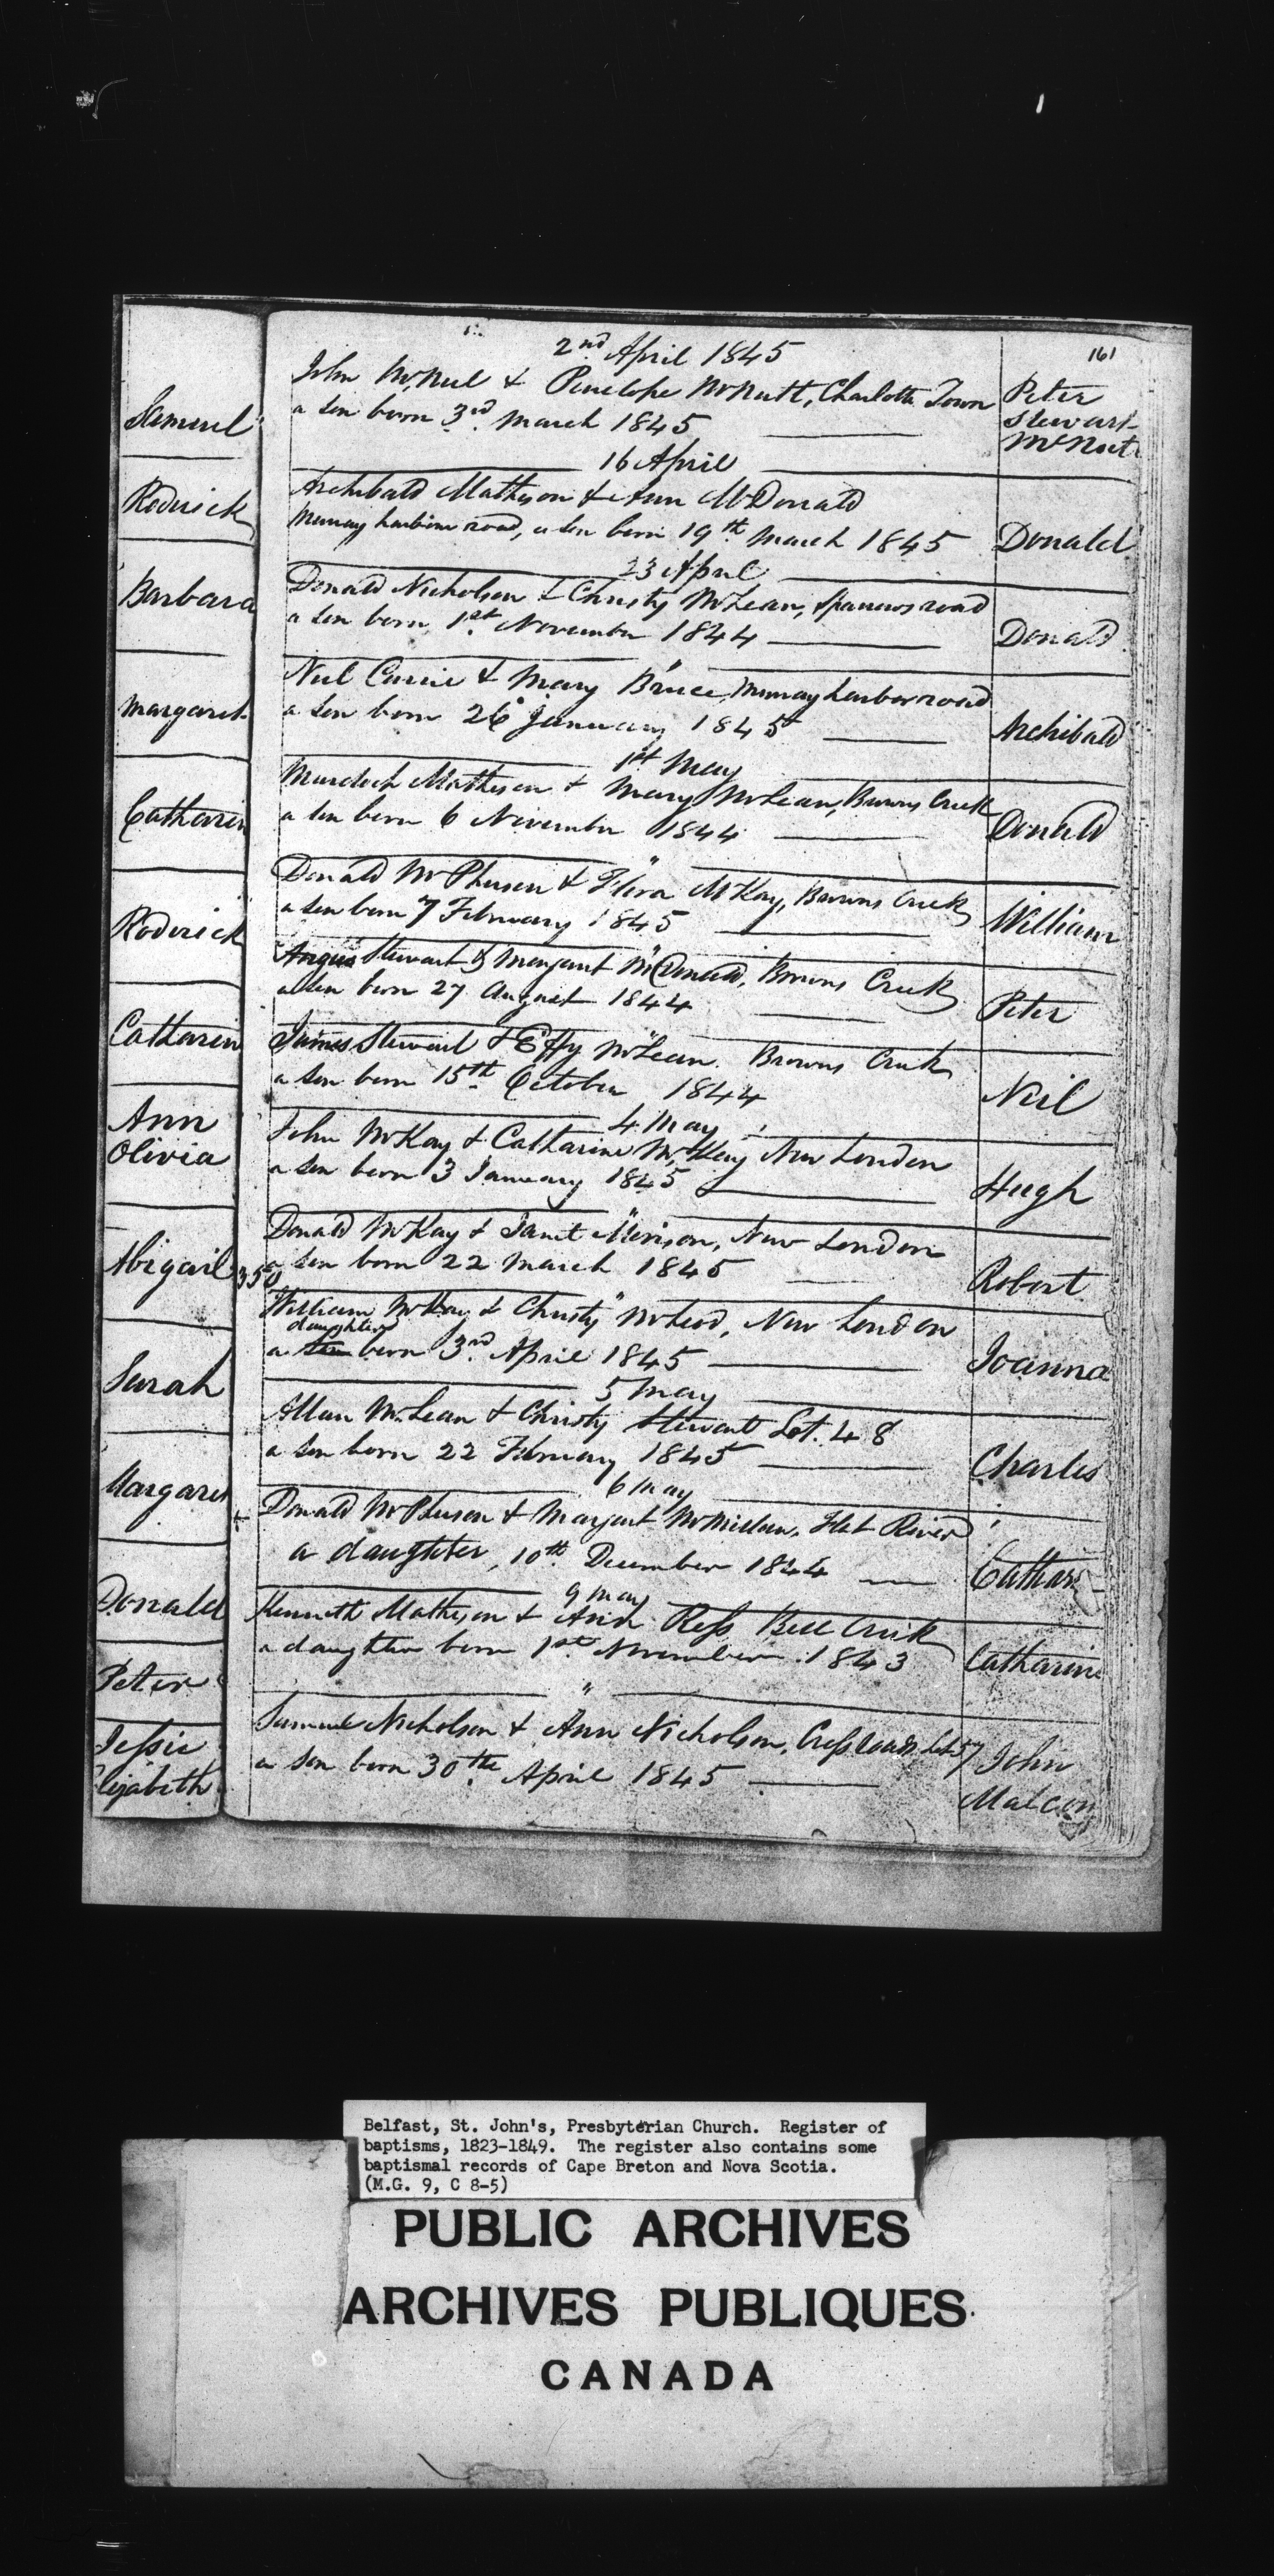 161
2nd April 1845
John McNeil & Penelope McNutt, Charlotte Town
a son born 3rd March 1845
Peter
Stewart
McNutt
16 April
Archibald Matheson & Ann McDonald
Murray harbour road, a son born 19th March 1845
Donald
23 April
Donald Nicholson & Christy McLean, Sparrows road
a son born 1st November 1844
Donald
"
Neil Currie & Mary Bruce, Murray harbor road
a son born 26 January 1845
Archibald
1st May
Murdoch Matheson & Mary McLean, Browns Creek
a son born 6 November 1844
Donald
"
Donald McPherson & Flora McKay, Browns Creek
a son born 7 February 1845
William
"
Angus Stewart & Margaret McDonald, Browns Creek
a son born 27 August 1844
Peter
"
James Stewart & Effy McLean Browns Creek
a son born 15th October 1844
Neil
4 May
John McKay & Catharine McKay New London
a son born 3 January 1845
Hugh
"
Donald McKay & Janet Morison, New London
a son born 22 March 1845
Robert
"
William McKay & Christy McLeod, New London
daughter
a son born 3rd April 1845
Joanna
5 May
Allan McLean & Christy Stewart Lot. 48
a son born 22 February 1845
Charles
6 May
Donald McPherson & Margaret McMillan, Flat River
a daughter, 10th December 1844
Cathar
9 May
Kenneth Matheson & Ann Ross Bell Creek
a daughter born 1st November 1843
Catharine
"
Samuel Nicholson & Ann Nicholson, Cross roads Lot 57
a son born 30th April 1845
John
Malcom
Samuel
Roderick
Barbara
Margaret
Catharin
Roderick
Catharin
Ann
Olivia
Abigail
350
Sarah
Margaret
Donald
Peter
Jessie
Elizabeth
Belfast, St. John's, Presbyterian Church. Register of
baptisms, 1823-1849. The register also contains some
baptismal records of Cape Breton and Nova Scotia.
(M.G. 9, C 8-5)
PUBLIC ARCHIVES
ARCHIVES PUBLIQUES
CANADA